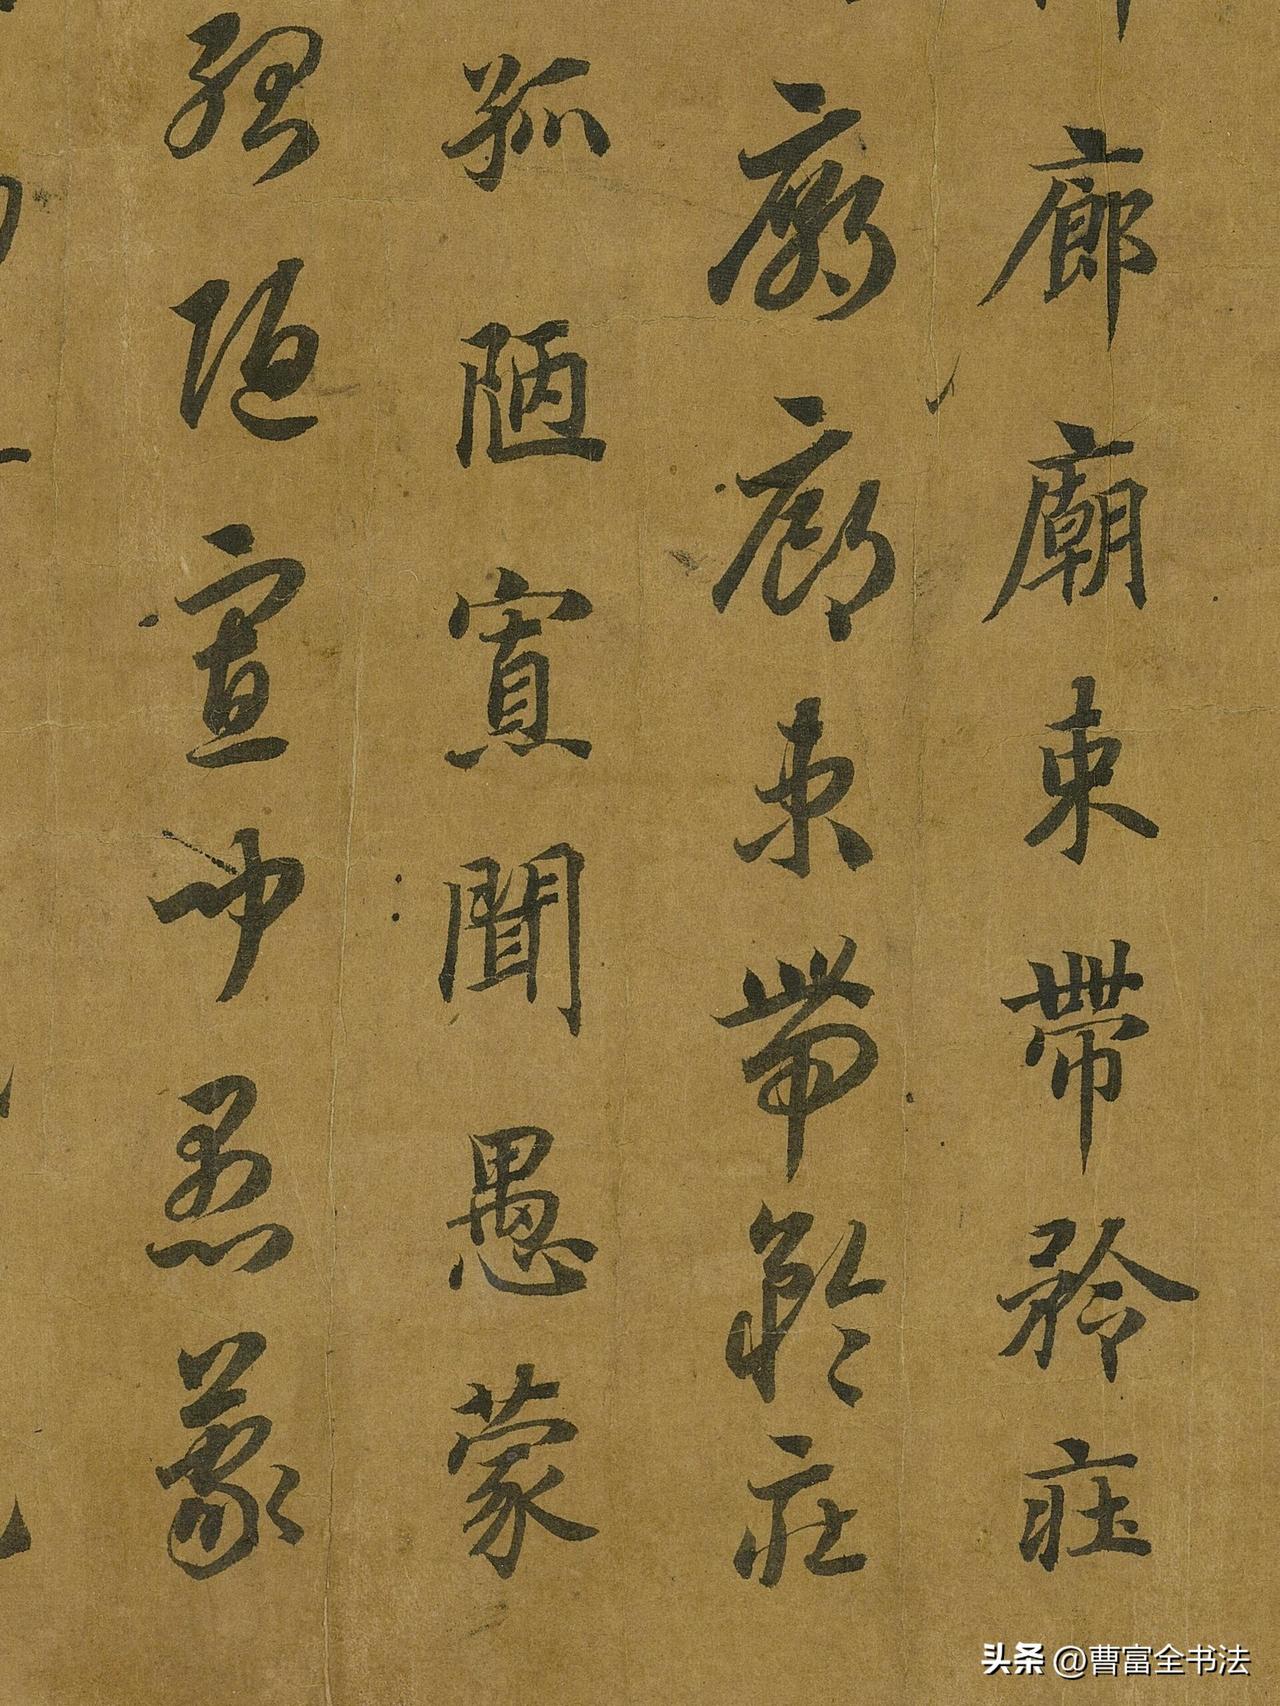 廊廟束帶矜莊
廟廊束帶矜莊
孤陋寡聞愚蒙
孤陋寡聞愚蒙
头条 @曹富全书法